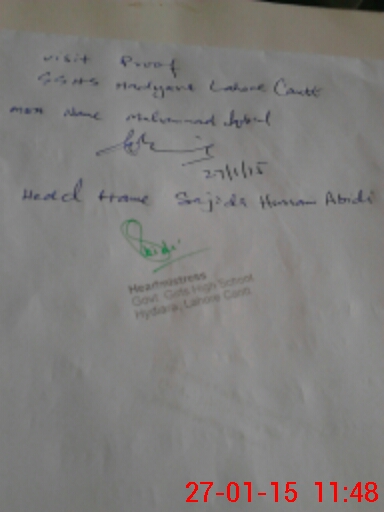 visit Proof
GGHS Hadyara Lahore Cantt
Name Muhammad Iqbal
27/1/15
Head Name Sajida Hussain Abidi
Headmistress
Govt. Girls High School
Hydiara, Lahore Cantt.
27-01-15 11:48